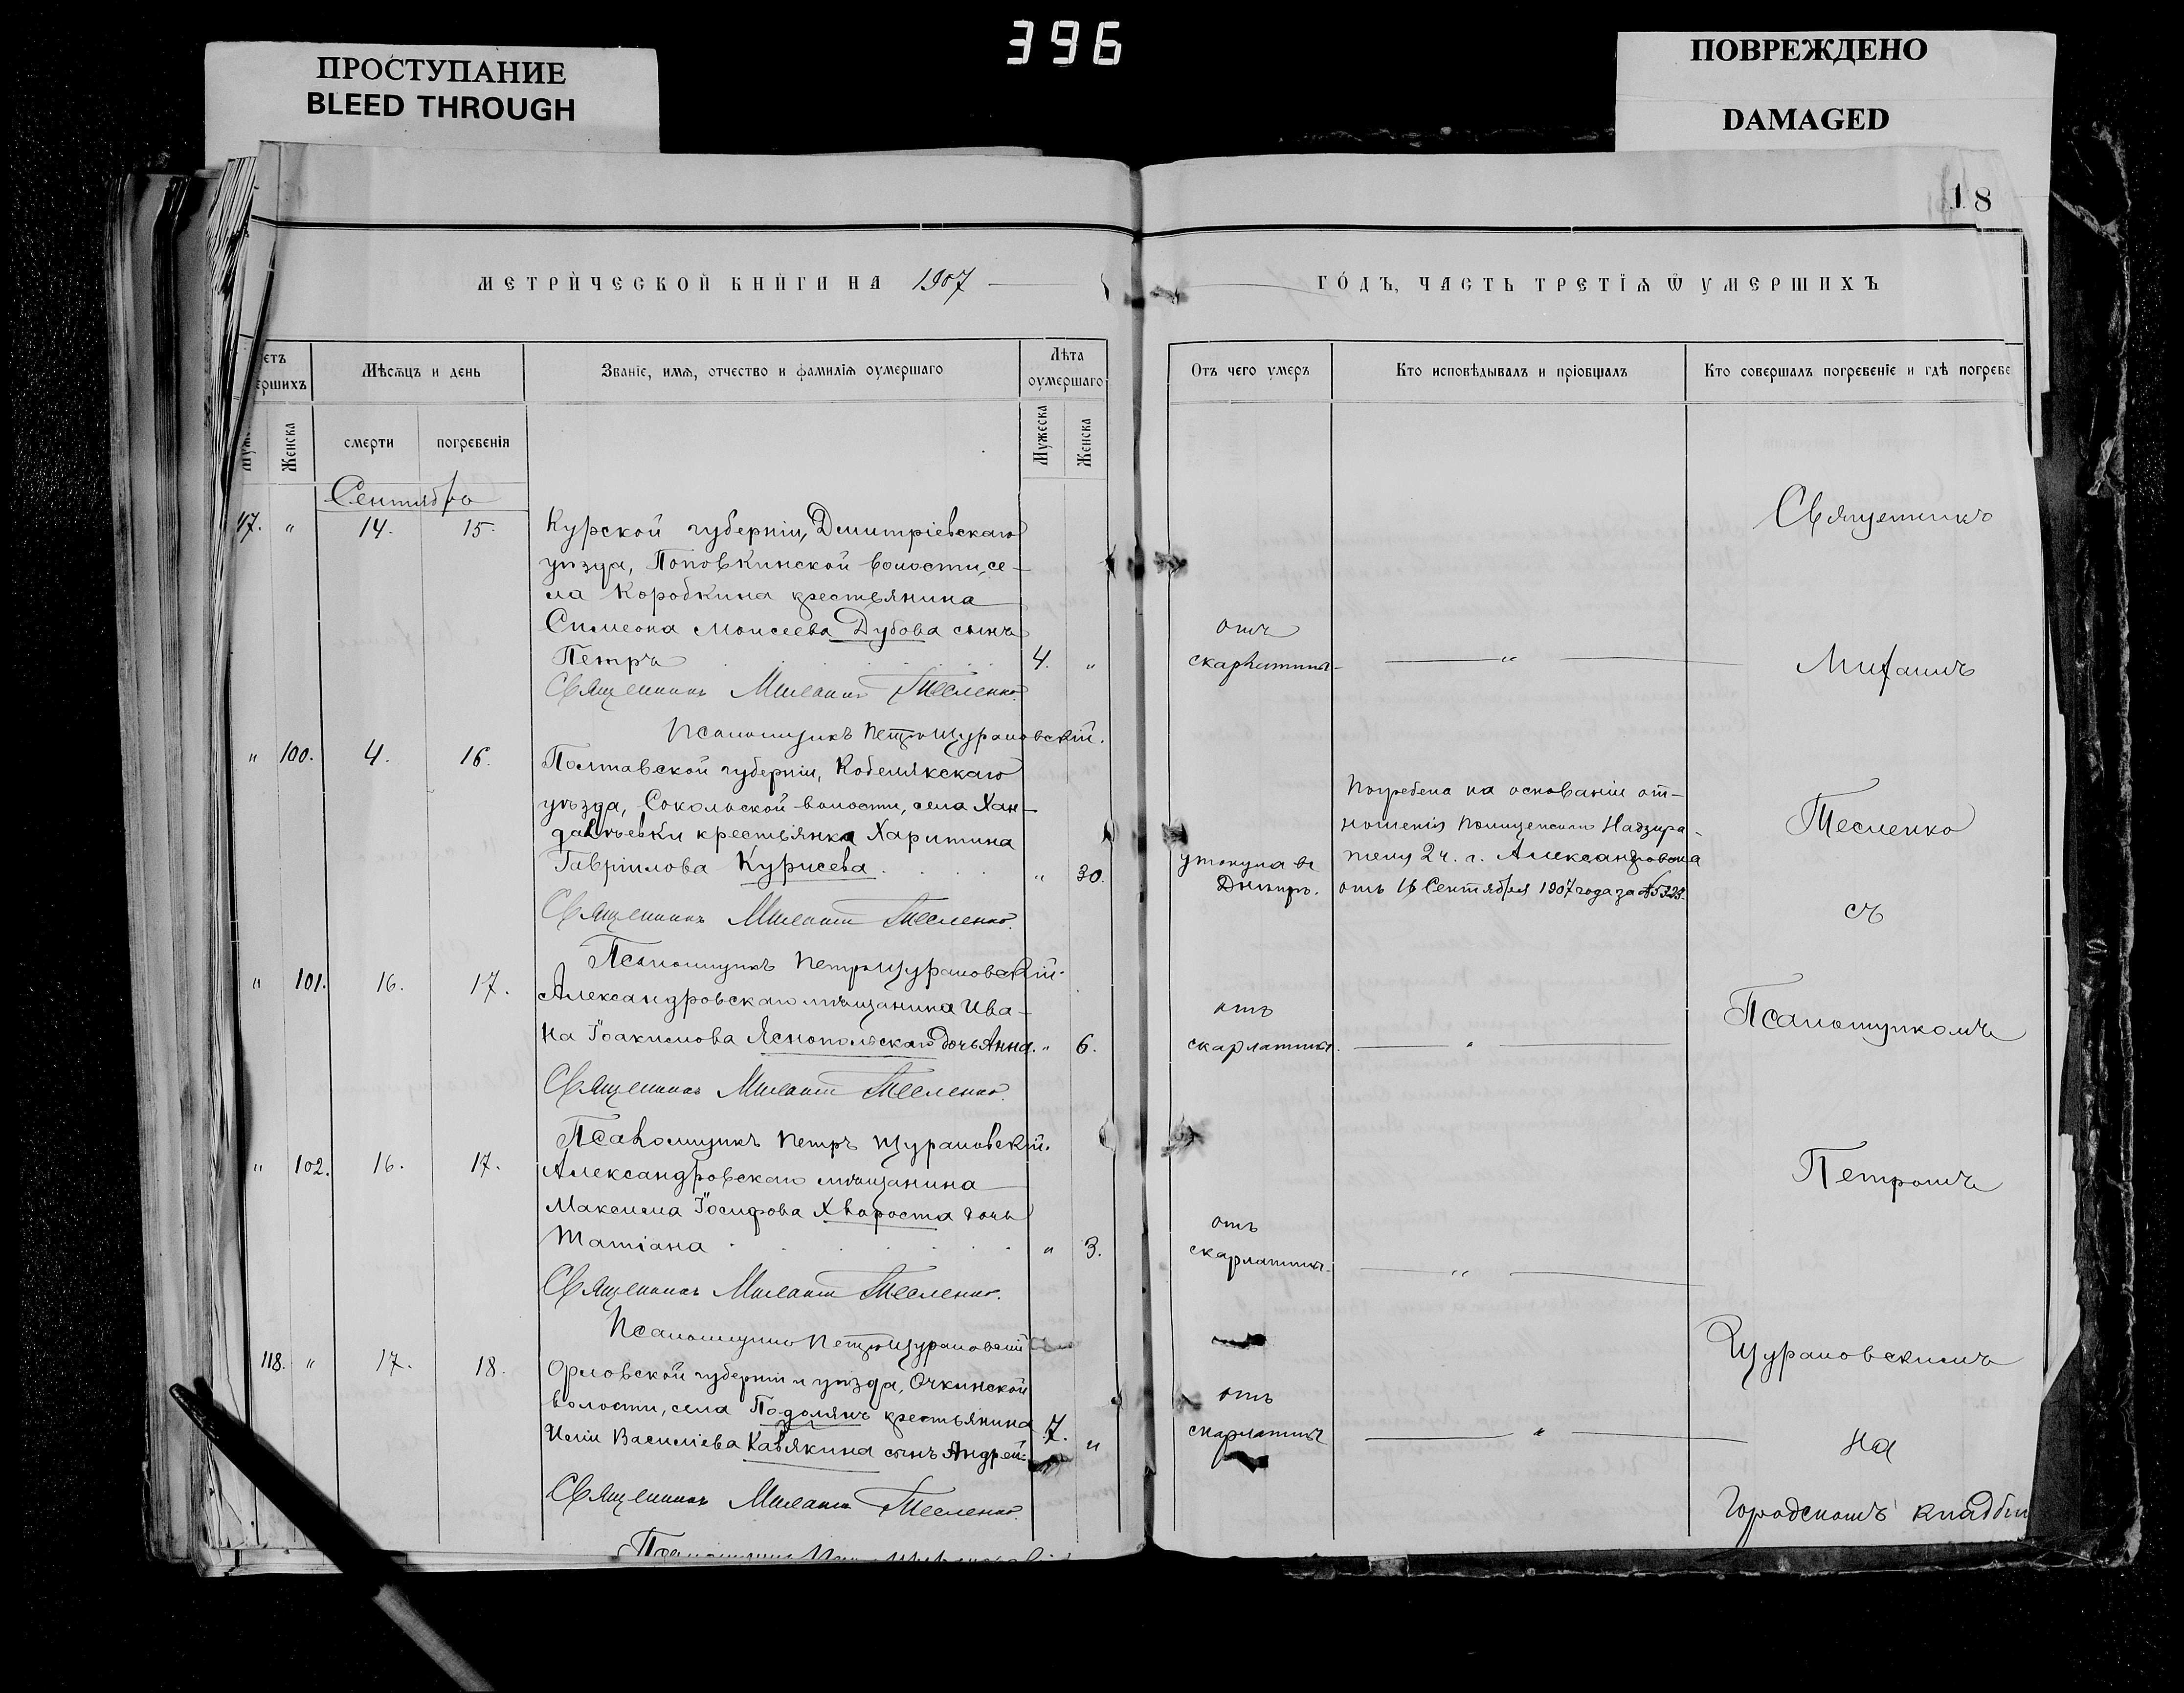 396
ПРОСТУПАНИЕ
BLEED THROUGH
ПОВРЕЖДЕНО
DAMAGED
18
МЕТРИЧЕСКОЙ КНИГИ НА 1907
ГОДЪ, ЧАСТЬ ТРЕТІѦ Ѿ УМЕРШИХЪ
Мѣсѧцъ и день
Званіе, имѧ, отчество и фамиліѧ оумершаго
Лѣта
оумершаго
Женска
смерти
погребенія
Мужеска
Женска
Отъ чего умеръ
Кто исповѣдывалъ и пріобщалъ
Кто совершалъ погребеніе и гдѣ погребе
Сентябрь
47. " 14. 15.
Курской губерніи, Дмитріевскаго
уѣзда, Поповкинской волости, се-
ла Коробкина крестьянина
Симеона Моисеева Дубова сынъ
Петръ 4. "
Священникъ Михаилъ Тесленко
Псаломщикъ Петръ Щурановскій.
отъ
скарлатины "
" 100. 4. 16.
Полтавской губерніи, Кобелякскаго
уѣзда, Сокольской волости, села Хан-
далѣевки крестьянка Харитина
Гавріилова Курисева. " 30.
Священникъ Михаилъ Тесленко.
Псаломщикъ Петръ Щурановскій.
утонула въ
Днѣпрѣ.
Погребена на основаніи от-
ношенія Полицейскаго Надзира-
теля 2 ч. г. Александровска
отъ 16 Сентября 1907 года за №5323.
" 101. 16. 17.
Александровскаго мѣщанина Ива-
на Іоакимова Яснопольскаго дочь Анна. " 6.
Священникъ Михаилъ Тесленко.
Псаломщикъ Петръ Щурановскій.
отъ
скарлатины. "
" 102. 16. 17.
Александровскаго мѣщанина
Максима Іосифова Хвороста дочь
Татіана " 3.
Священникъ Михаилъ Тесленко.
Псаломщикъ Петръ Щурановскій
отъ
скарлатины. "
118. " 17. 18.
Орловской губерніи и уѣзда, Очкинской
волости, села Подолянъ крестьянина
Иліи Василіева Кавякина сынъ Андрей. 7. "
Священникъ Михаилъ Тесленко.
отъ
скарлатины "
Священникъ
Михаилъ
Тесленко
съ
Псаломщикомъ
Петромъ
Щурановскимъ
на
Городскомъ кладби